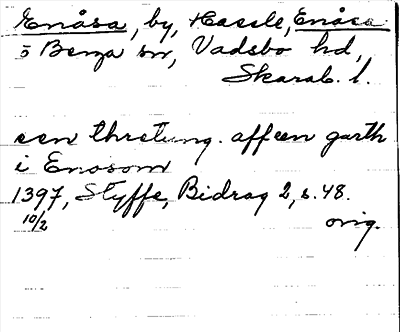 Enåsa, by, Hassle, Enåsa
o Berga sn, Vadsbo hd,
Skarab. l.
een thretiung. affeen garth
i Enosom
1397, Styffe, Bidrag 2, s. 48.
10/2 orig.